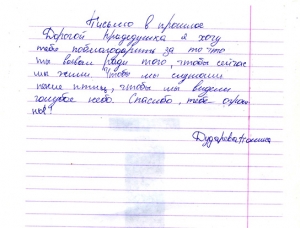 Письмо в прошлое
Дорогой прадедушка я хочу
тебя поблагодарить за то что
ты воевал ради того, чтобы сейчас
мы жили. Чтобы мы слушали
пение птиц, чтобы мы видели
голубое небо. Спасибо, тебе огром
ное!
Дударева